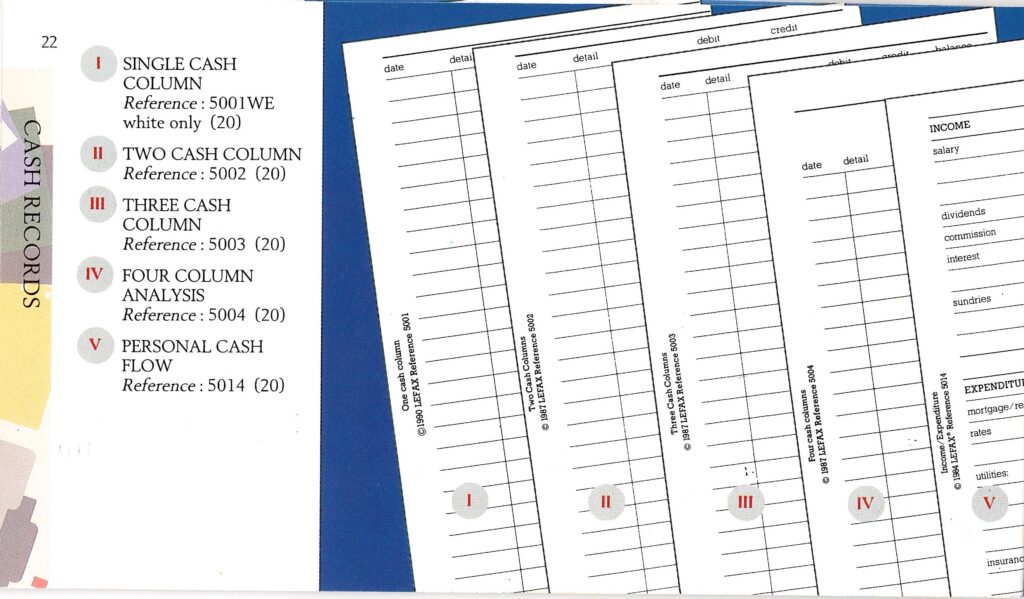 22
CASH RECORDS
I SINGLE CASH
COLUMN
Reference : 5001WE
white only (20)
II TWO CASH COLUMN
Reference : 5002 (20)
III THREE CASH
COLUMN
Reference : 5003 (20)
IV FOUR COLUMN
ANALYSIS
Reference : 5004 (20)
V PERSONAL CASH
FLOW
Reference : 5014 (20)
date detail
One cash column
©1990 LEFAX Reference 5001
I
date detail debit credit
Two Cash Columns
© 1987 LEFAX Reference 5002
II
date detail debit credit balance
Three Cash Columns
© 1987 LEFAX Reference 5003
III
date detail
Four cash columns
© 1987 LEFAX Reference 5004
IV
INCOME
salary
dividends
commission
interest
sundries
EXPENDITU
mortgage/re
rates
utilities:
insuranc
Income/Expenditure
© 1984 LEFAX® Reference 5014
V